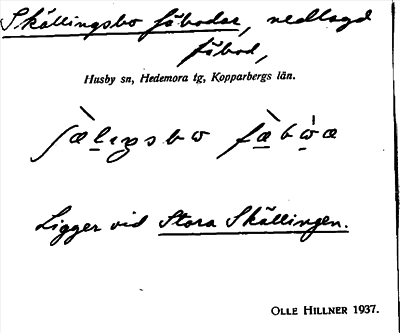 Skällingsbo fäbodar, nedlagd
fäbod,
Husby sn, Hedemora tg, Kopparbergs län.
Ligger vid Stora Skällingen.
OLLE HILLNER 1937.